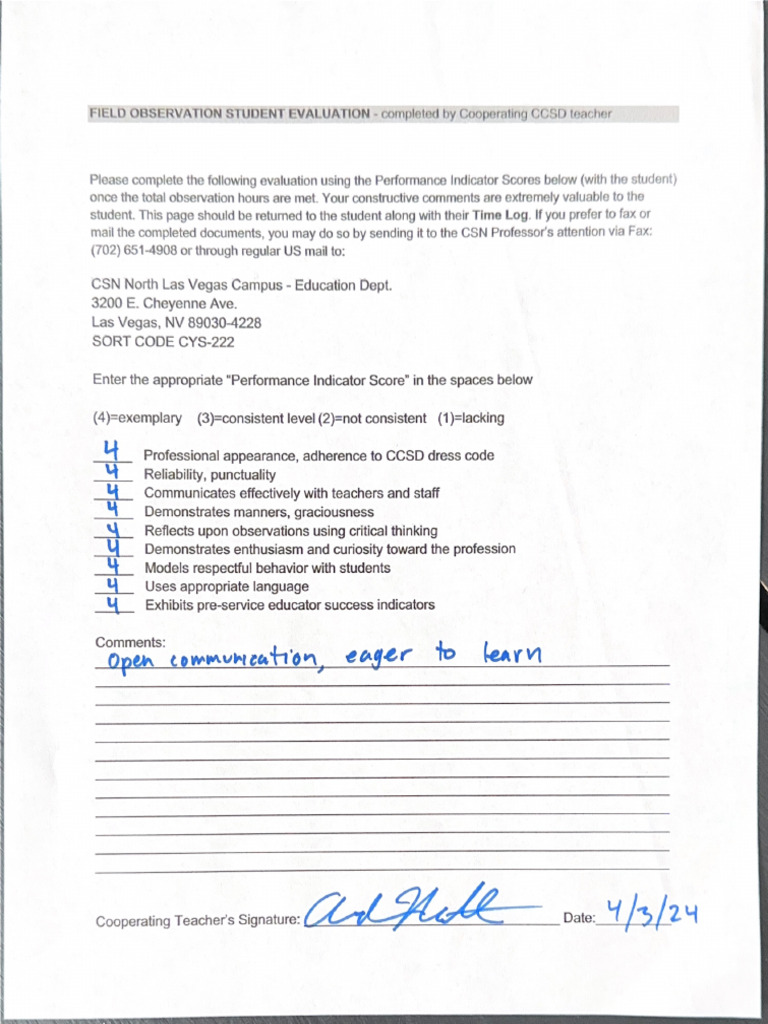 FIELD OBSERVATION STUDENT EVALUATION - completed by Cooperating CCSD teacher
Please complete the following evaluation using the Performance Indicator Scores below (with the student)
once the total observation hours are met. Your constructive comments are extremely valuable to the
student. This page should be returned to the student along with their Time Log. If you prefer to fax or
mail the completed documents, you may do so by sending it to the CSN Professor's attention via Fax:
(702) 651-4908 or through regular US mail to:
CSN North Las Vegas Campus - Education Dept.
3200 E. Cheyenne Ave.
Las Vegas, NV 89030-4228
SORT CODE CYS-222
Enter the appropriate "Performance Indicator Score" in the spaces below
(4)=exemplary (3)=consistent level (2)=not consistent (1)=lacking
4 Professional appearance, adherence to CCSD dress code
4 Reliability, punctuality
4 Communicates effectively with teachers and staff
4 Demonstrates manners, graciousness
4 Reflects upon observations using critical thinking
4 Demonstrates enthusiasm and curiosity toward the profession
4 Models respectful behavior with students
4 Uses appropriate language
4 Exhibits pre-service educator success indicators
Comments:
Open communication, eager to learn
Cooperating Teacher's Signature: Date: 4/3/24